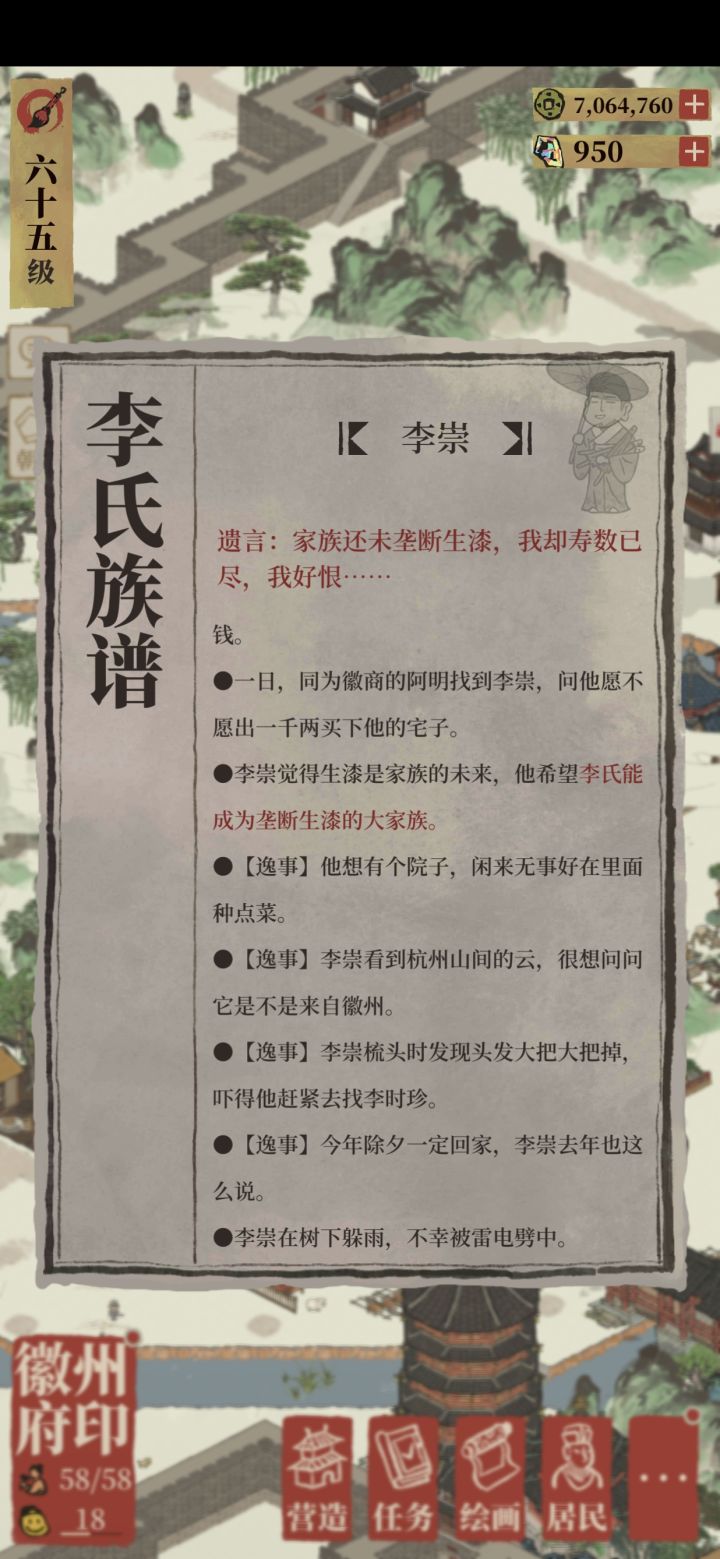 六十五级
7,064,760
950
李氏族谱
李崇
遗言：家族还未垄断生漆，我却寿数已
尽，我好恨……
钱。
●一日，同为徽商的阿明找到李崇，问他愿不
愿出一千两买下他的宅子。
●李崇觉得生漆是家族的未来，他希望李氏能
成为垄断生漆的大家族。
●【逸事】他想有个院子，闲来无事好在里面
种点菜。
●【逸事】李崇看到杭州山间的云，很想问问
它是不是来自徽州。
●【逸事】李崇梳头时发现头发大把大把掉，
吓得他赶紧去找李时珍。
●【逸事】今年除夕一定回家，李崇去年也这
么说。
●李崇在树下躲雨，不幸被雷电劈中。
徽州
府印
58/58
18
营造
任务
绘画
居民